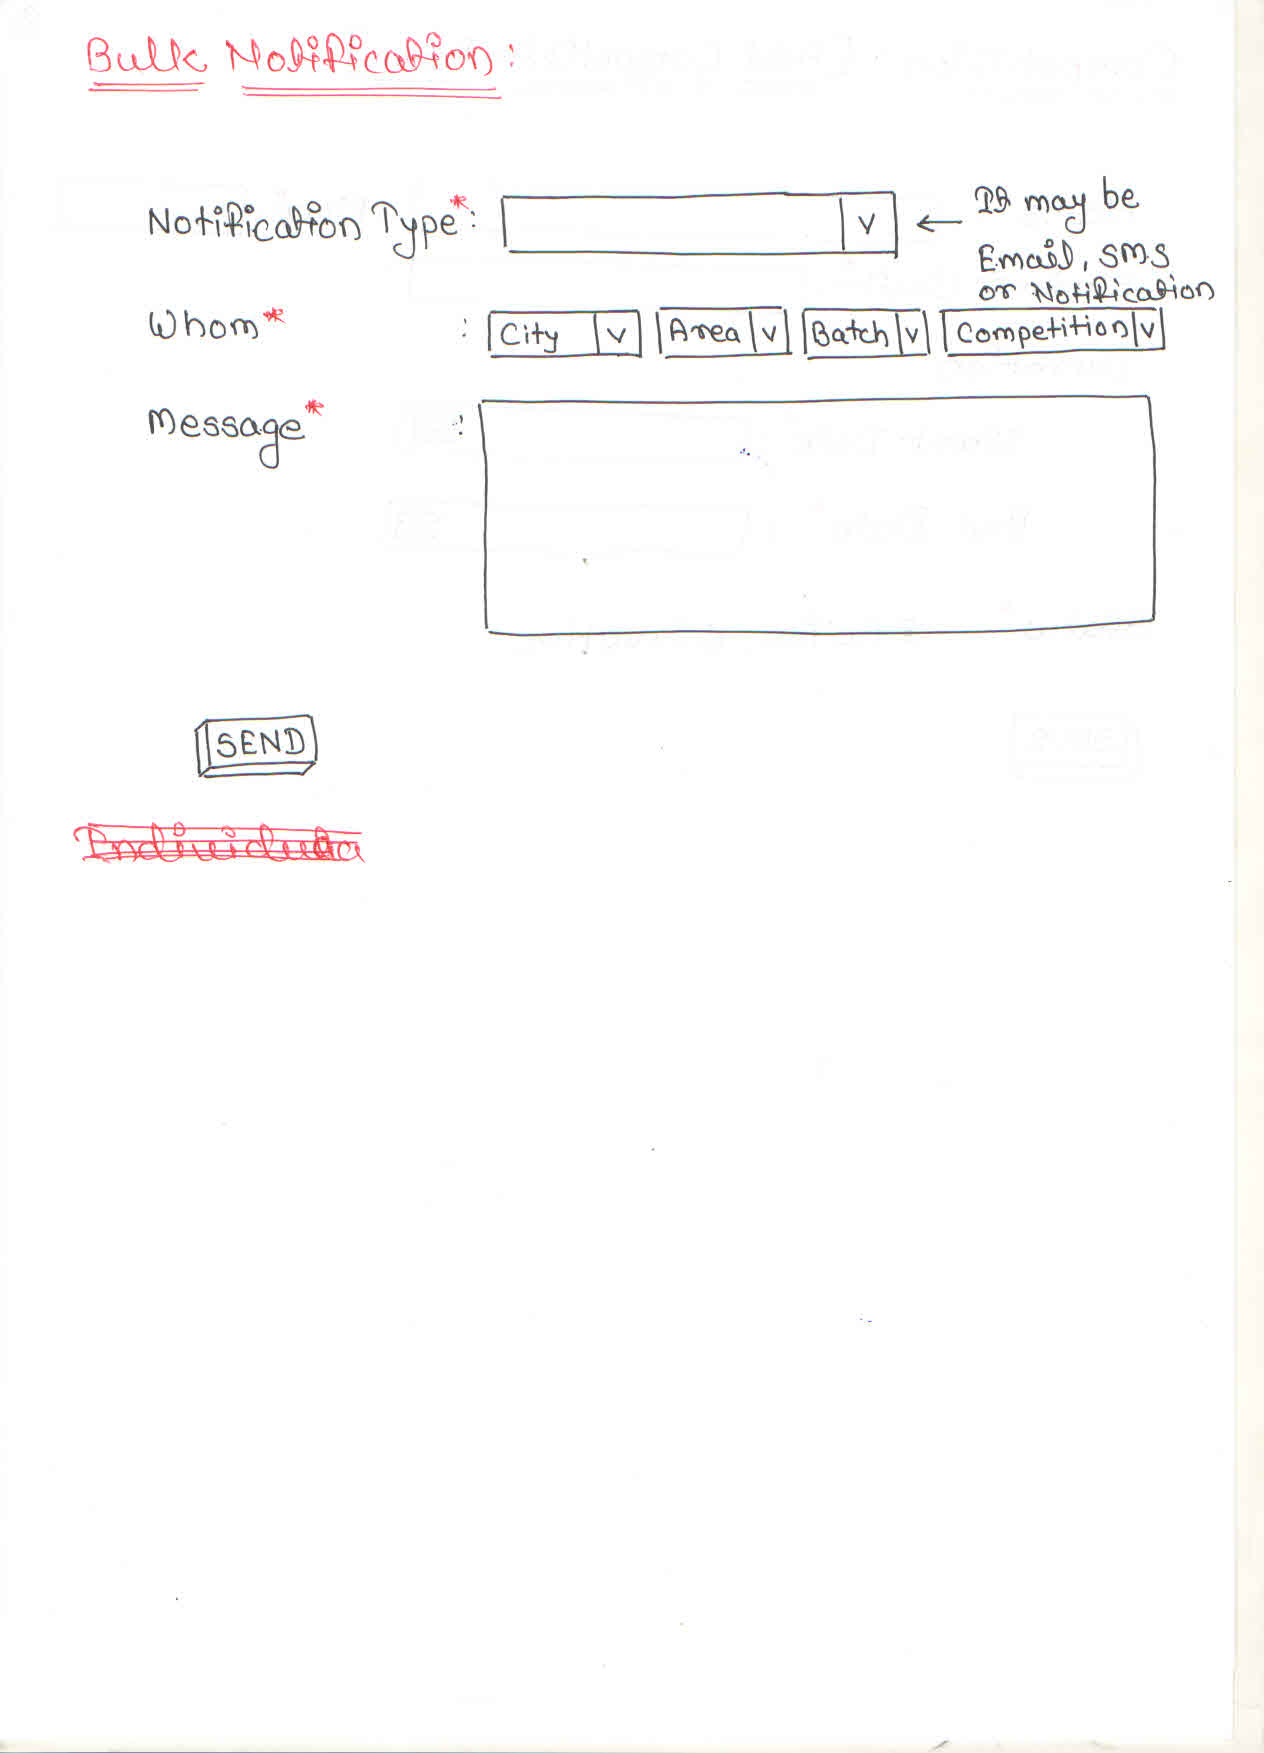 Bulk Notification:
Notification Type*: v ← It may be
Email, SMS
or Notification
Whom* : City v Area v Batch v Competition v
Message* :
SEND